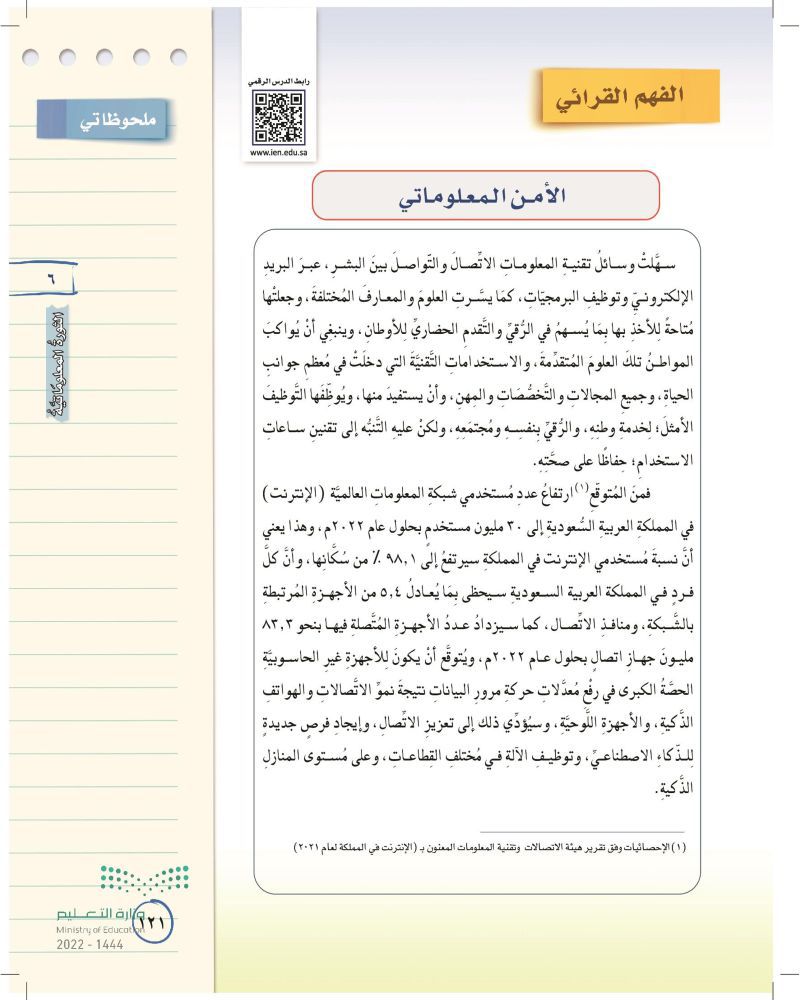 الفهم القرائي
رابط الدرس الرقمي
www.ien.edu.sa
ملحوظاتي
٦
الثورةُ المعلوماتيَّةُ
الأمـن المـعـلوماتي
سـهَّلتْ وسـائلُ تقنيـةِ المعلومـاتِ الاتِّصـالَ والتَّواصـلَ بينَ البشـرِ، عبـرَ البريدِ
الإلكترونـيِّ وتوظيفِ البرمجيَّاتِ، كمَا يسَّـرتِ العلومَ والمعارفَ المُختلفةَ، وجعلتْها
مُتاحةً للأخذِ بها بِمَا يُسـهمُ في الرُّقيِّ والتَّقدمِ الحضاريِّ للأوطانِ، وينبغِي أنْ يُواكبَ
المواطنُ تلكَ العلومَ المُتقدِّمةَ، والاستخداماتِ التقنيَّةَ التي دخلَتْ في مُعظمِ جوانبِ
الحياةِ، وجميعِ المجالاتِ والتَّخصُّصَاتِ والمِهنِ، وأنْ يستفيدَ منها، ويُوظِّفَها التَّوظيفَ
الأمثلَ؛ لِخدمةِ وطنِهِ، والرُّقيِّ بنفسِـهِ ومُجتمَعِهِ، ولكنْ عليهِ التَّنبُّه إلى تقنينِ سـاعاتِ
الاستخدامِ؛ حِفاظًا على صحَّتِهِ.
فمنَ المُتوقَّعِ(١) ارتفاعُ عددِ مُستخدمي شبكةِ المعلوماتِ العالميَّةِ (الإنترنت)
في المملكةِ العربيةِ السُّعوديةِ إلى ٣٠ مليون مستخدمٍ بحلولِ عام ٢٠٢٢م، وهذا يعني
أنَّ نسبةَ مُستخدمي الإنترنت في المملكةِ سيرتفعُ إلى ٩٨,١ ٪ من سُكَّانِها، وأنَّ كلَّ
فردٍ فـي المملكة العربيةِ السـعوديةِ سـيحظى بِمَا يُعـادلُ ٥,٤ من الأجهـزةِ المُرتبطةِ
بالشَّـبكةِ، ومنافـذِ الاتِّصـال، كما سـيزدادُ عـددُ الأجهزةِ المُتَّصلةِ فيهـا بنحو ٨٣,٣
مليـونَ جهـازِ اتصالٍ بحلولِ عـام ٢٠٢٢م، ويُتوقَّع أنْ يكونَ لِلأجهزةِ غيرِ الحاسـوبيَّةِ
الحصَّةُ الكبرى في رفْعِ مُعدَّلاتِ حركةِ مرورِ البياناتِ نتيجةَ نموِّ الاتَّصالاتِ والهواتفِ
الذَّكيةِ، والأجهزةِ اللَّوحيَّةِ، وسيُؤدِّي ذلك إلى تعزيزِ الاتِّصالِ، وإيجادِ فرصٍ جديدةٍ
لِلـذّكاءِ الاصطناعـيِّ، وتوظيـفِ الآلةِ فـي مُختلفِ القِطاعـاتِ، وعلى مُسـتوى المنازلِ
الذَّكيةِ.
(١) الإحصائيات وفق تقرير هيئة الاتصالات وتقنية المعلومات المعنون بـ (الإنترنت في المملكة لعام ٢٠٢١)
وزارة التـعـلـيم
Ministry of Education
2022 - 1444
١٢١